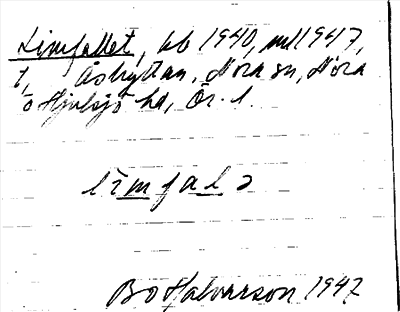 Limfallet, kb 1940, ml 1947,
t, Åshyttan, Nora sn, Nora
o Hjulsjö hd, Ör. l.
limfalə
Bo Halvarson 1947